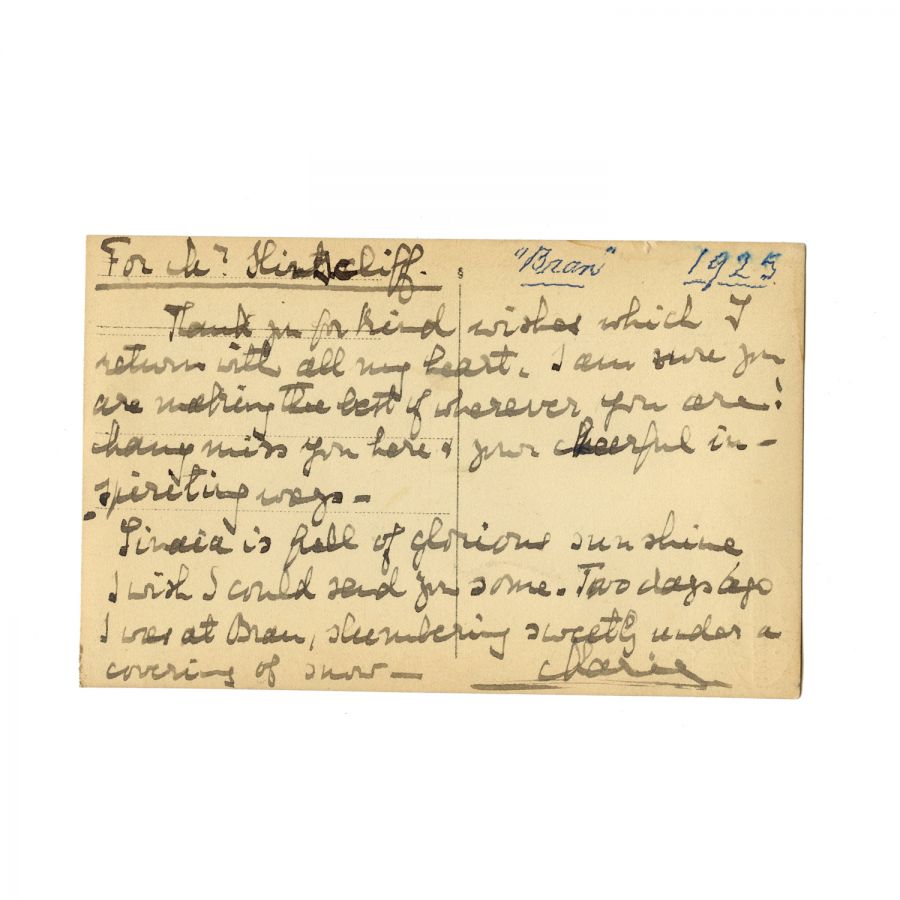 For Mr Hinchcliff. "Bran" 1925
Thank you for kind wishes which I
return with all my heart. I am sure you
are making the best of wherever you are!
Many miss you here & your cheerful in-
spiriting ways -
Sinaia is full of glorious sunshine
I wish I could send you some. Two days ago
I was at Bran, slumbering sweetly under a
covering of snow -
Marie